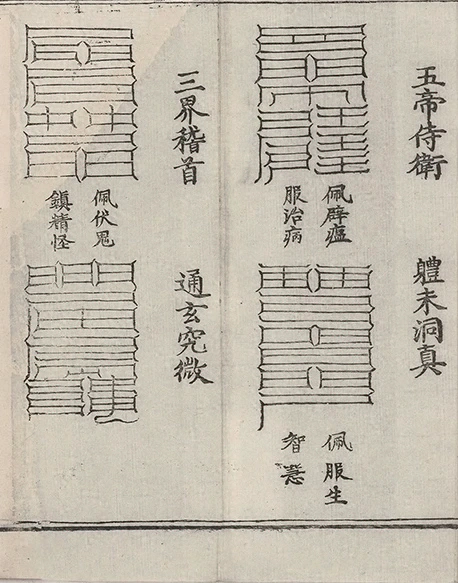 五帝侍衛
佩辟瘟
服治病
軆未洞真
佩服生
智慧
三界稽首
佩伏鬼
鎮精怪
通玄究微